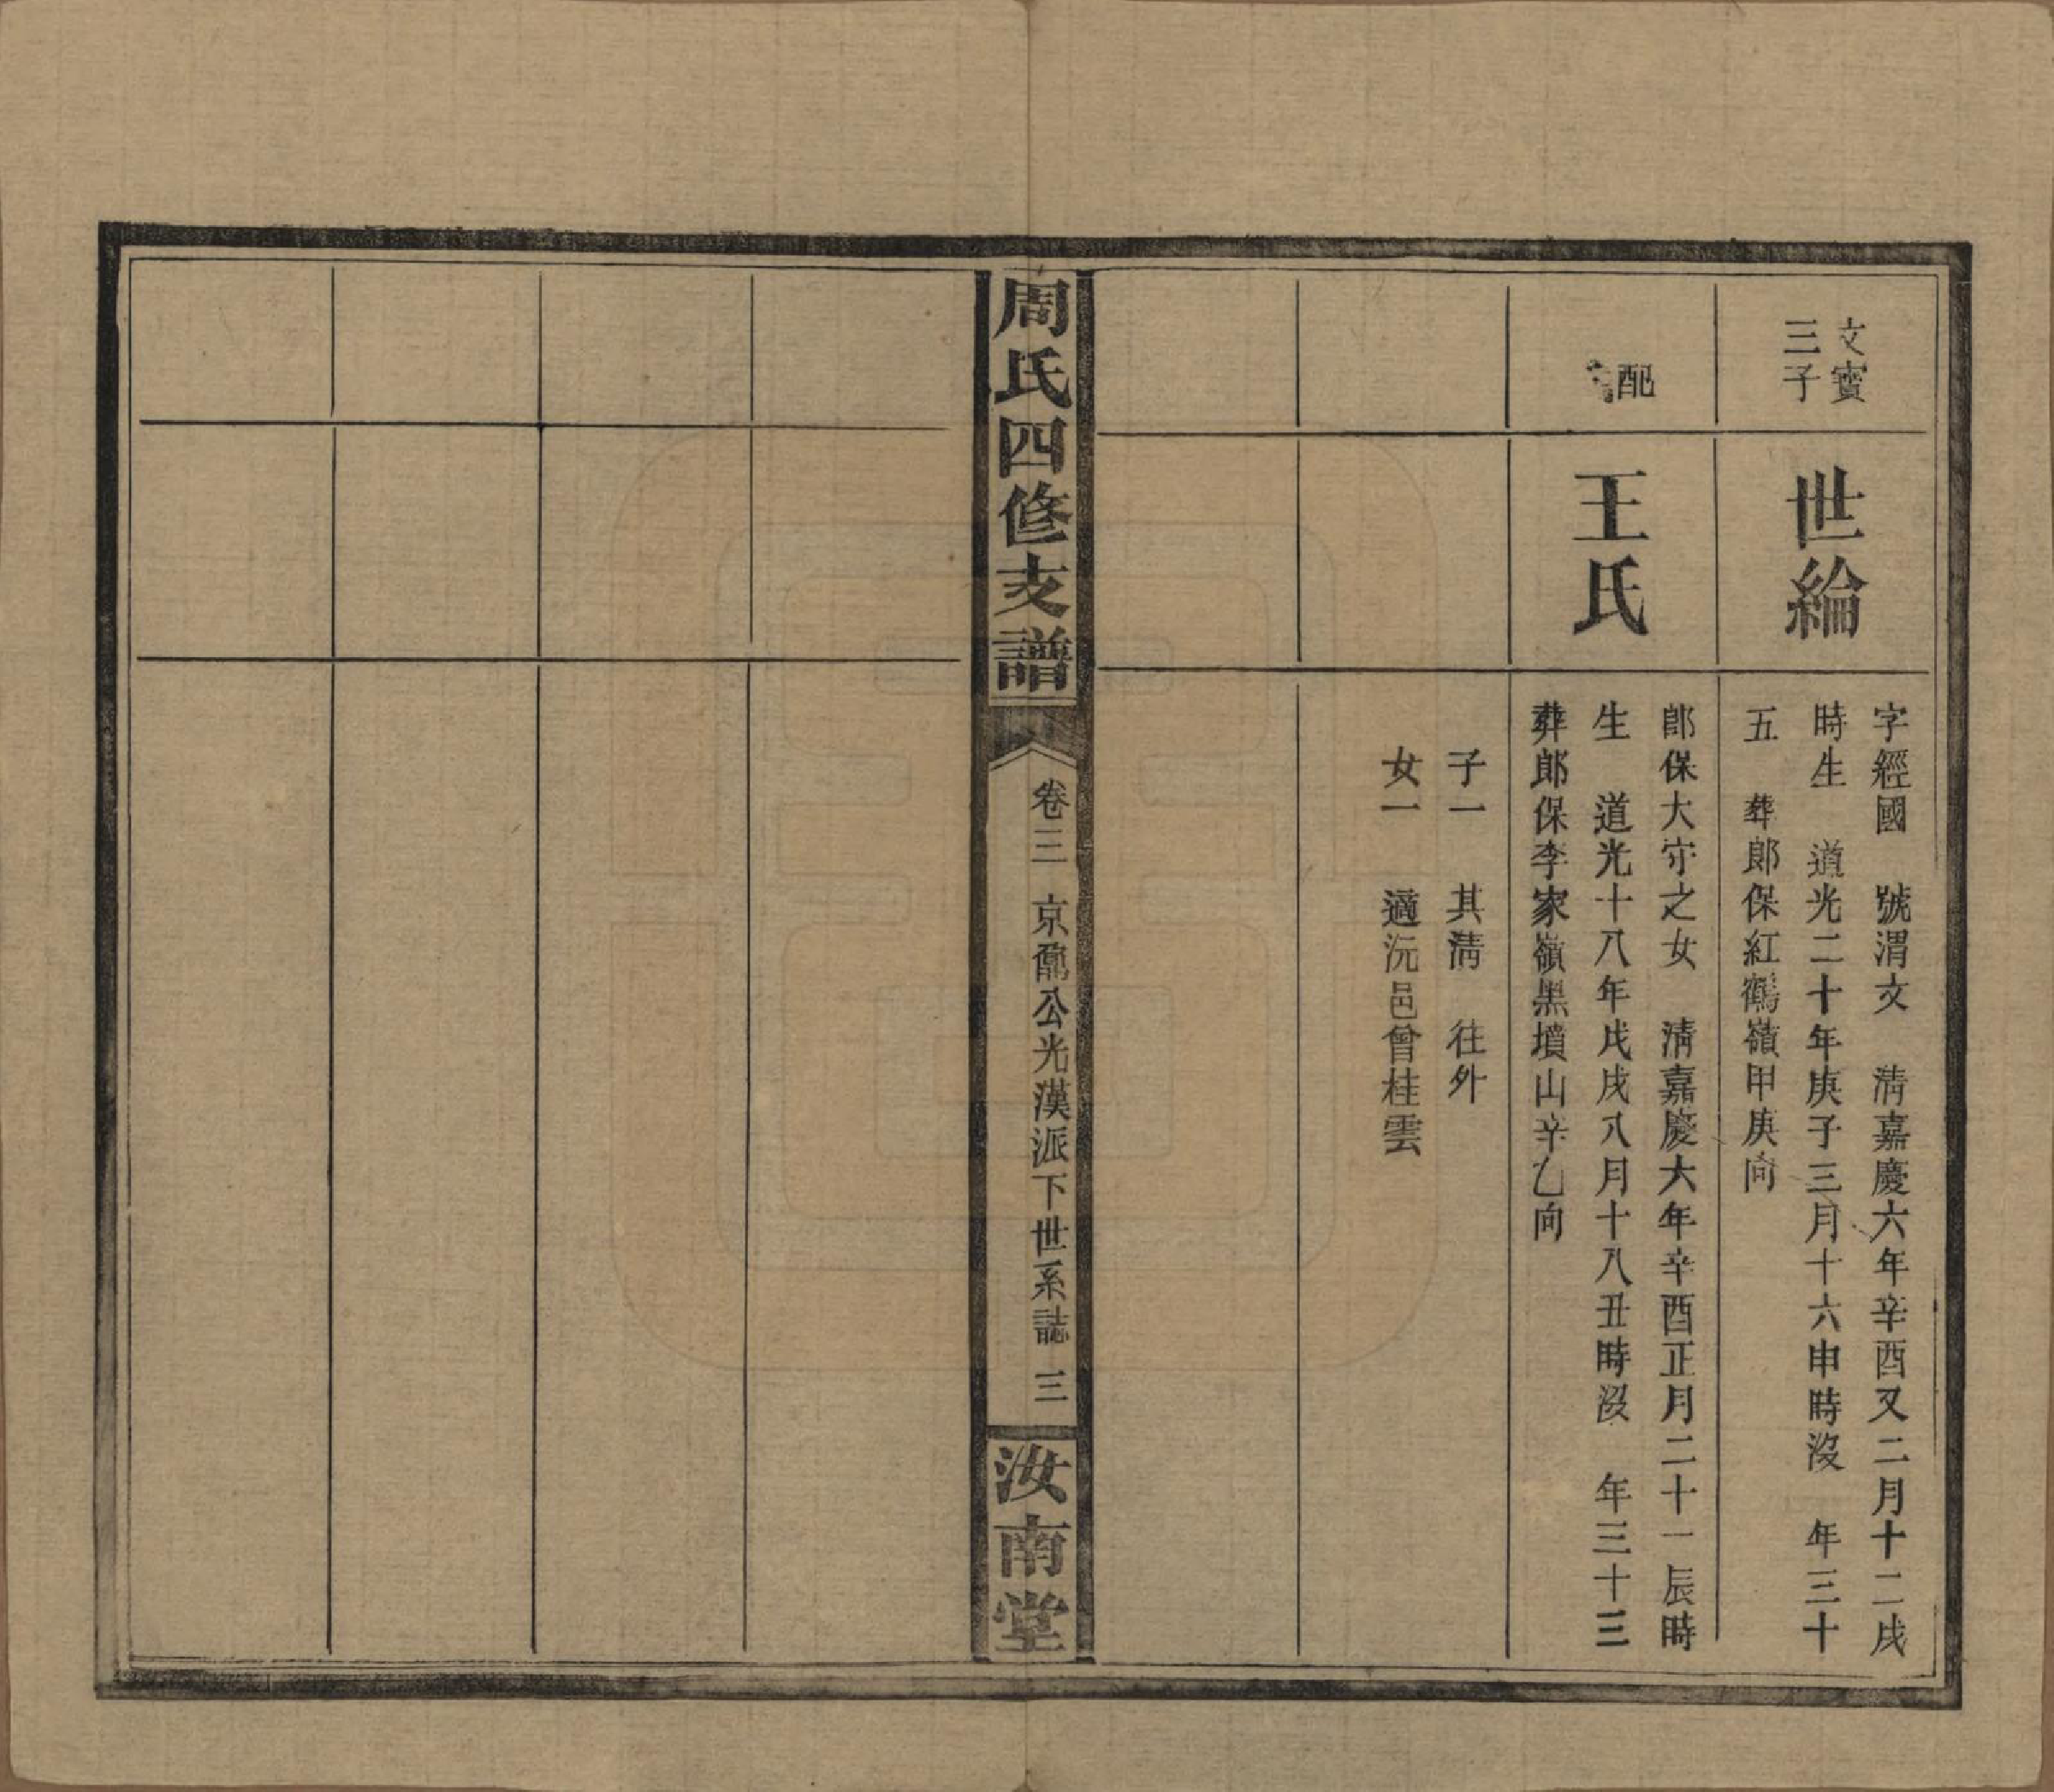 文寳
三子
世綸
字經國　號渭文　淸嘉慶六年辛酉又二月十二戌
時生　道光二十年庚子三月十六申時沒　年三十
五　葬郞保紅鶴嶺甲庚向
配
王氏
郞保大守之女　淸嘉慶六年辛酉正月二十一辰時
生　道光十八年戊戌八月十八丑時沒　年三十三
葬郞保李家嶺黑墳山辛乙向
子一　其淸　往外
女一　適沅邑曾桂雲
周氏四修支譜
卷三　京鼐公光漢派下世系誌　三
汝南堂